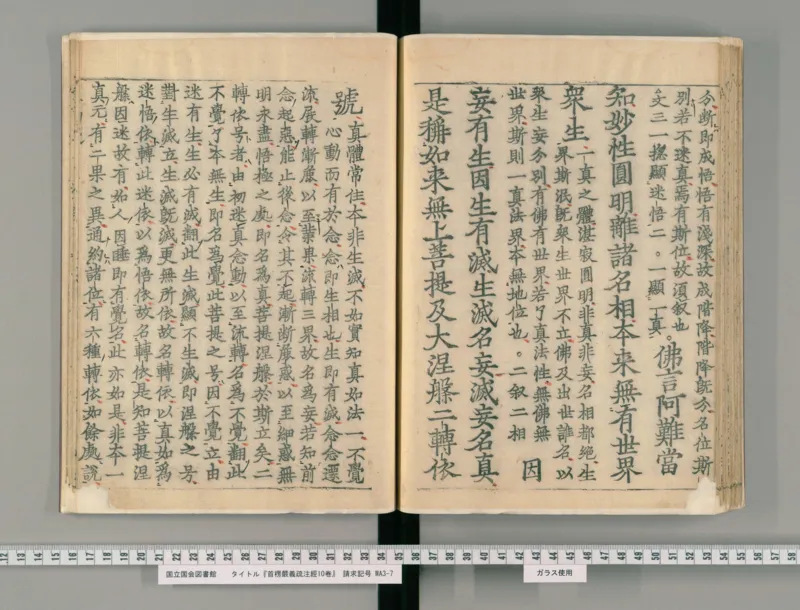 分斷即成悟悟有淺深故成階降階降旣分名位斯
別若不迷真焉有斯位故須叙也
文三一揔顯迷悟二。一顯一真。佛言阿難當
知妙性圓明離諸名相本来無有世界
衆生
一真之體湛寂圓明非真非妄名相都絶生
界斯泯旣衆生世界不立佛及出世誰名以
衆生妄分別有佛有世界若了真法性無佛無
世界斯則一真法界本無地位也。二叙二相
因
妄有生因生有滅生滅名妄滅妄名真
是稱如来無上菩提及大涅槃二轉依
號
真體常住本非生滅不如實知真如法一不覺
心動而有於念念即生相也生即有滅念念遷
流展轉漸麁以至業果流轉三界故名爲妄若知前
念起惡能止後念令其不起漸斷麁惑以至細惑無
明永盡悟極之處即名爲真菩提涅槃於斯立矣二
轉依号者由初迷真念動以至流轉名爲不覺翻此
不覺了本無生即名爲覺此菩提之号因不覺立由
迷有生生必有滅翻此生滅顯不生滅即涅槃之号
對生滅立生滅旣滅更無所依故名轉依以真如爲
迷悟依轉此迷依以爲悟依故名轉依是知菩提涅
槃因迷故有如人因睡即有覺名此亦如是非本一
真元有二果之異通約諸位有六種轉依如餘處說
12 13 14 15 16 17 18 19 20 21 22 23 24 25 26 27 28 29 30 31 32 33 34 35 36 37 38 39 40 41 42 43 44 45 46 47 48 49 50 51 52 53 54 55 56 57 58
国立国会図書館 タイトル『首楞嚴義疏注經10巻』 請求記号 WA3-7
ガラス使用